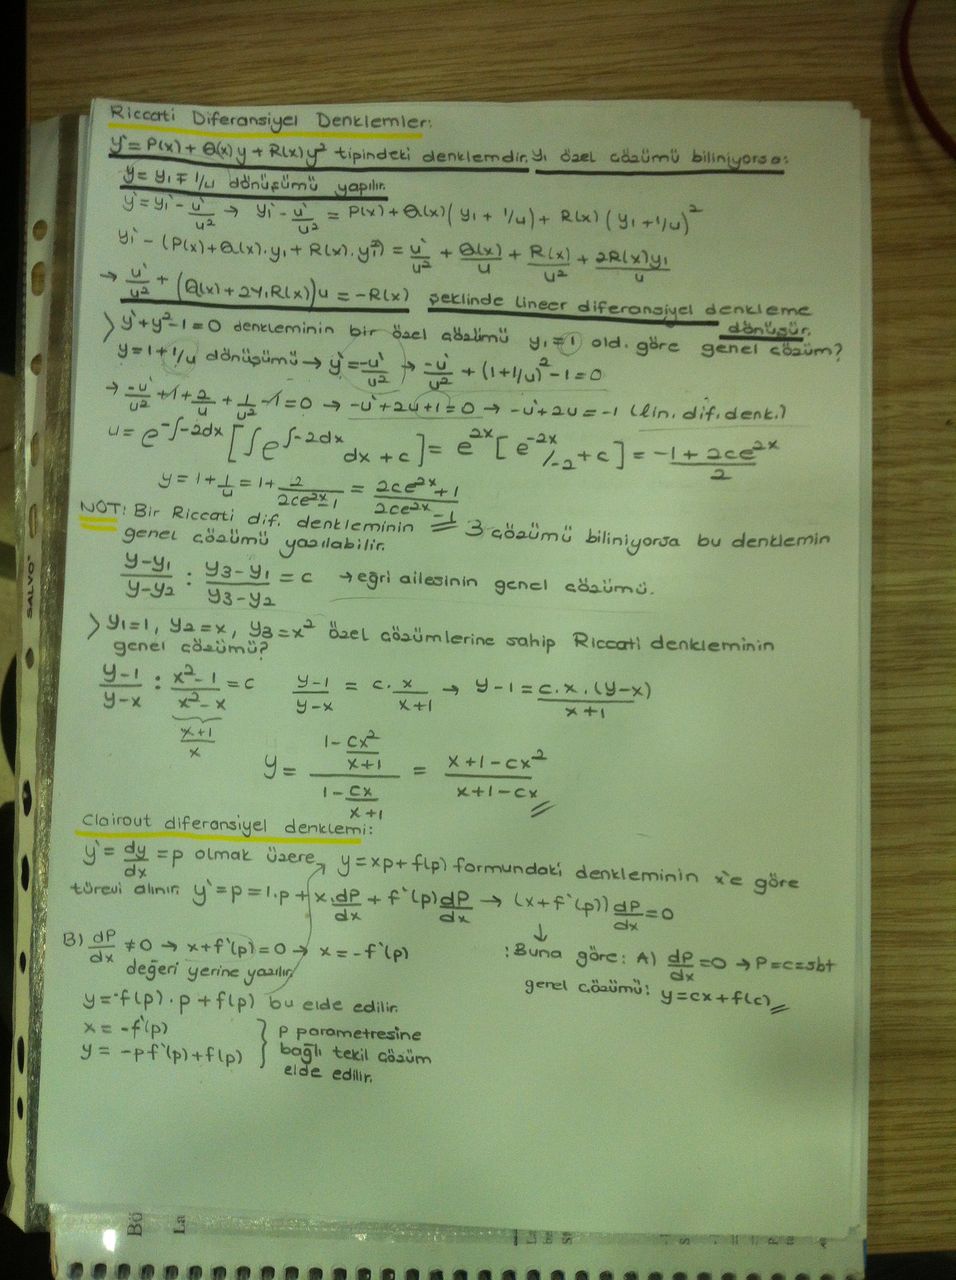 Riccati Diferansiyel Denklemler:
y' = P(x) + Q(x)y + R(x)y² tipindeki denklemdir. y₁ özel çözümü biliniyorsa:
y = y₁ ∓ 1/u dönüşümü yapılır.
y' = y₁' - u'/u² → y₁' - u'/u² = P(x) + Q(x)(y₁ + 1/u) + R(x)(y₁ + 1/u)²
y₁' - (P(x) + Q(x).y₁ + R(x).y₁²) = u'/u² + Q(x)/u + R(x)/u² + 2R(x)y₁/u
→ u'/u² + (Q(x) + 2y₁R(x))u = -R(x) şeklinde lineer diferansiyel denkleme
dönüşür.
> y' + y² - 1 = 0 denkleminin bir özel çözümü y₁ = 1 old. göre genel çözüm?
y = 1 + 1/u dönüşümü → y' = -u'/u² → -u'/u² + (1 + 1/u)² - 1 = 0
→ -u'/u² + 1 + 2/u + 1/u² - 1 = 0 → -u' + 2u + 1 = 0 → -u' + 2u = -1 (lin. dif. denk.)
u = e^-∫-2dx [∫e^∫-2dx dx + c] = e^2x [e^-2x/-2 + c] = (-1 + 2ce^2x)/2
y = 1 + 1/u = 1 + 2/(2ce^2x - 1) = (2ce^2x + 1)/(2ce^2x - 1)
NOT: Bir Riccati dif. denkleminin 3 çözümü biliniyorsa bu denklemin
genel çözümü yazılabilir.
(y - y₁)/(y - y₂) : (y₃ - y₁)/(y₃ - y₂) = c → eğri ailesinin genel çözümü.
> y₁ = 1, y₂ = x, y₃ = x² özel çözümlerine sahip Riccati denkleminin
genel çözümü?
(y - 1)/(y - x) : (x² - 1)/(x² - x) = c (y - 1)/(y - x) = c. x/(x + 1) → y - 1 = c.x.(y - x)/(x + 1)
(x + 1)/x
y = (1 - cx²/(x + 1))/(1 - cx/(x + 1)) = (x + 1 - cx²)/(x + 1 - cx)
Clairout diferansiyel denklemi:
y' = dy/dx = p olmak üzere, y = xp + f(p) formundaki denkleminin x'e göre
türevi alınır. y' = p = 1.p + x.dp/dx + f'(p)dp/dx → (x + f'(p))dp/dx = 0
B) dp/dx ≠ 0 → x + f'(p) = 0 → x = -f'(p)
değeri yerine yazılır.
↓
: Buna göre: A) dp/dx = 0 → P = c = sbt
genel çözümü: y = cx + f(c)
y = -f'(p).p + f(p) bu elde edilir.
x = -f'(p)
y = -pf'(p) + f(p)
} p parametresine
bağlı tekil çözüm
elde edilir.
SALVO
Bö
La